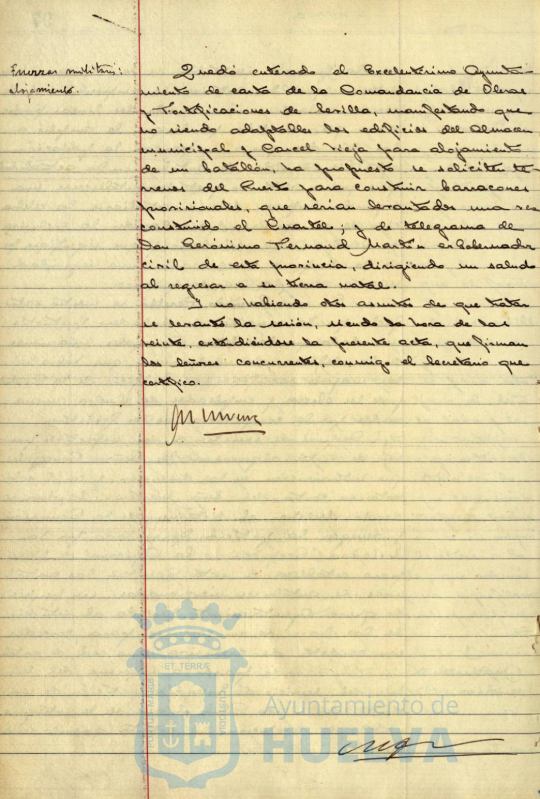 Fuerzas militares:
alojamiento.
Quedó enterado el Excelentísimo Ayunta-
miento de carta de la Comandancia de Obras
y Fortificaciones de Sevilla, manifestando que
no siendo adaptables los edificios del Almacen
municipal y Carcel Vieja para alojamiento
de un batallón, ha propuesto se soliciten te-
rrenos del Puerto para construir barracones
provisionales, que serían levantados una vez
construido el Cuartel; y de telegrama de
Don Gerónimo Fernaud Martín exGobernador
civil de esta provincia, dirigiendo un saludo
al regresar a su tierra natal.
Y no habiendo otros asuntos de que tratar
se levantó la sesión, siendo la hora de las
veinte, extendiéndose la presente acta, que firman
los señores concurrentes, conmigo el Secretario que
certifico.
ET TERRÆ
CUSTODIA
Ayuntamiento de
HUELVA